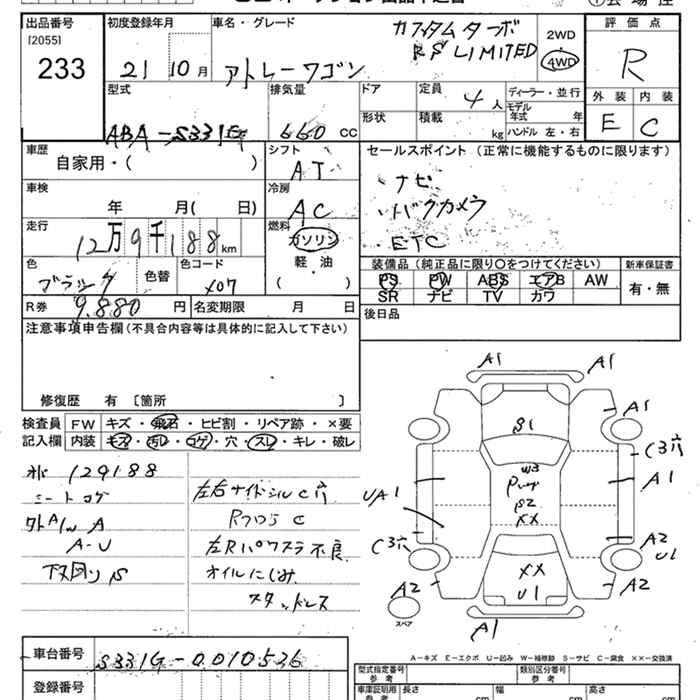 出品番号 初度登録年月 車名・グレード カスタムターボ 2WD 評価点
[2055] RS LIMITED 4WD R
233 21 10月 アトレーワゴン
型式 排気量 ドア 定員 4人 ディーラー・並行 外装 内装
モデル年式 年
ABA-S331G 660cc 形状 積載 kg ハンドル 左・右 E C
車歴 シフト セールスポイント (正常に機能するものに限ります)
自家用・( ) AT
ナビ
車検 冷房
年 月( 日) AC バックカメラ
走行 燃料
12万9千188km ガソリン ETC
色 色替 色コード 軽・油 装備品 (純正品に限り○をつけてください) 新車保証書
ブラック X07 ( ) PS PW ABS エアB AW 有・無
R券 9.880円 名変期限 月 日 SR ナビ TV カワ
注意事項申告欄(不具合内容等は具体的に記入して下さい) 後日品
修復歴 有 [箇所 ]
検査員 FW キズ・飛石・ヒビ割・リペア跡・×要
記入欄 内装 キズ・汚レ・コゲ・穴・スレ・キレ・破レ
129188
シートコゲ 左右サイドシルC穴
A R フロア C
A-U 左Rパワスラ不良
下回りS オイルにじみ
スタッドレス
A1 A1
A1 S1
C3穴
W3 A1
UA1 S2
XX
C3穴 A2
U1
A2 XX A2
U1
スペア A1
A-キズ E-エクボ U-凹み W-補修跡 S-サビ C-腐食 ××-交換済
車台番号 S331G-0010536
型式指定番号 参考 類別区分番号 参考
登録番号 車庫証明用 参考 長さ cm 幅 cm 高さ cm